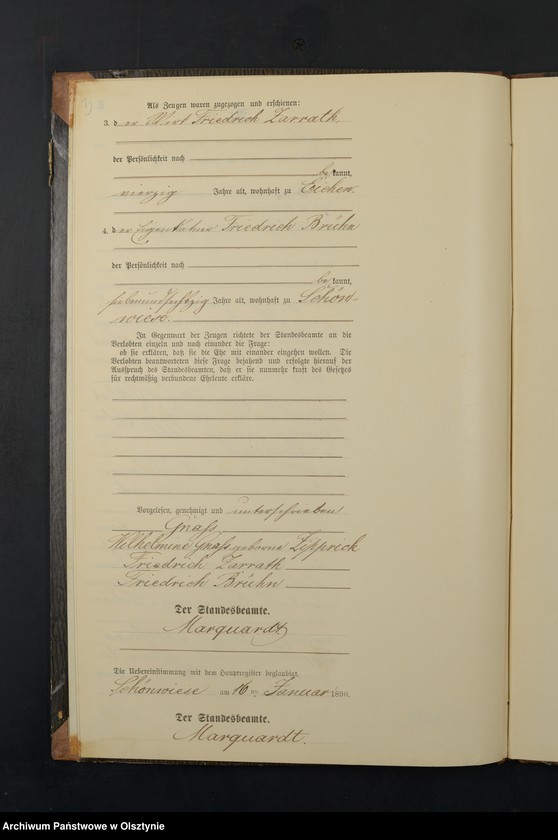 Als Zeugen waren zugezogen und erschienen:
3. der Wirt Friedrich Zarrath
der Persönlichkeit nach
bekannt,
vierzig Jahre alt, wohnhaft zu Eichen.
4. der Eigenkätner Friedrich Brühn
der Persönlichkeit nach
bekannt,
Jahre alt, wohnhaft zu Schön-
wiese.
In Gegenwart der Zeugen richtete der Standesbeamte an die
Verlobten einzeln und nach einander die Frage:
ob sie erklären, daß sie die Ehe mit einander eingehen wollen. Die
Verlobten beantworteten diese Frage bejahend und erfolgte hierauf der
Ausspruch des Standesbeamten, daß er sie nunmehr kraft des Gesetzes
für rechtmäßig verbundene Eheleute erkläre.
Vorgelesen, genehmigt und unterschrieben
Gnass
Wilhelmine Gnass geborne Zipprick
Friedrich Zarrath
Friedrich Brühn
Der Standesbeamte.
Marquardt
Die Uebereinstimmung mit dem Hauptregister beglaubigt.
Schönwiese am 16 ten Januar 1890.
Der Standesbeamte.
Marquardt.
Archiwum Państwowe w Olsztynie